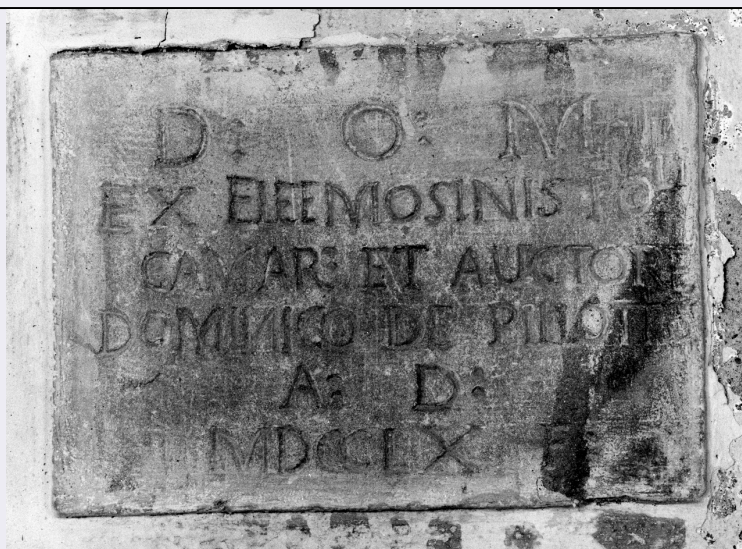 D: O: M
EX ELEEMOSINIS
CAMAR: ET AUCTORE
DOMINICO DE
A: D:
MDCCLX